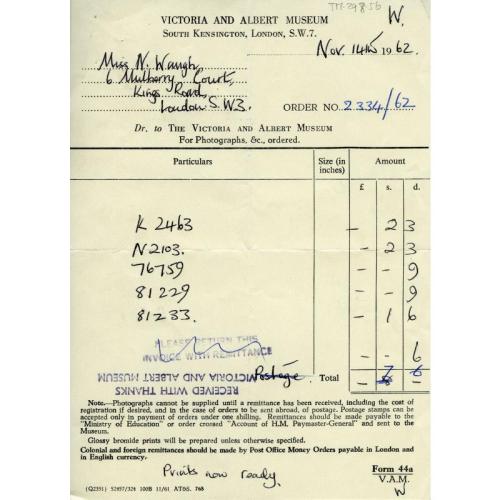 TM-298-56
W.
VICTORIA AND ALBERT MUSEUM
SOUTH KENSINGTON, LONDON, S.W.7.
Nov. 14th 1962.
Miss N. Waugh,
6 Mulberry Court,
Kings Road,
London S.W.3.
ORDER NO. 2334/62
Dr. to THE VICTORIA AND ALBERT MUSEUM
For Photographs, &c., ordered.
Particulars Size (in inches) Amount
£ s. d.
K 2463 - 2 3
N2103. - 2 3
76759 - - 9
81229 - - 9
81233. - 1 6
PLEASE RETURN THIS
INVOICE WITH REMITTANCE
- - 6
Postage. Total - 7 6
RECEIVED WITH THANKS
VICTORIA AND ALBERT MUSEUM
Note.—Photographs cannot be supplied until a remittance has been received, including the cost of
registration if desired, and in the case of orders to be sent abroad, of postage. Postage stamps can be
accepted only in payment of orders under one shilling. Remittances should be made payable to the
"Ministry of Education" or order crossed "Account of H.M. Paymaster-General" and sent to the
Museum.
Glossy bromide prints will be prepared unless otherwise specified.
Colonial and foreign remittances should be made by Post Office Money Orders payable in London and
in English currency.
Prints now ready.
Form 44a
V.A.M.
W
(Q2351) 52457/324 100B 11/61 AT&S. 768